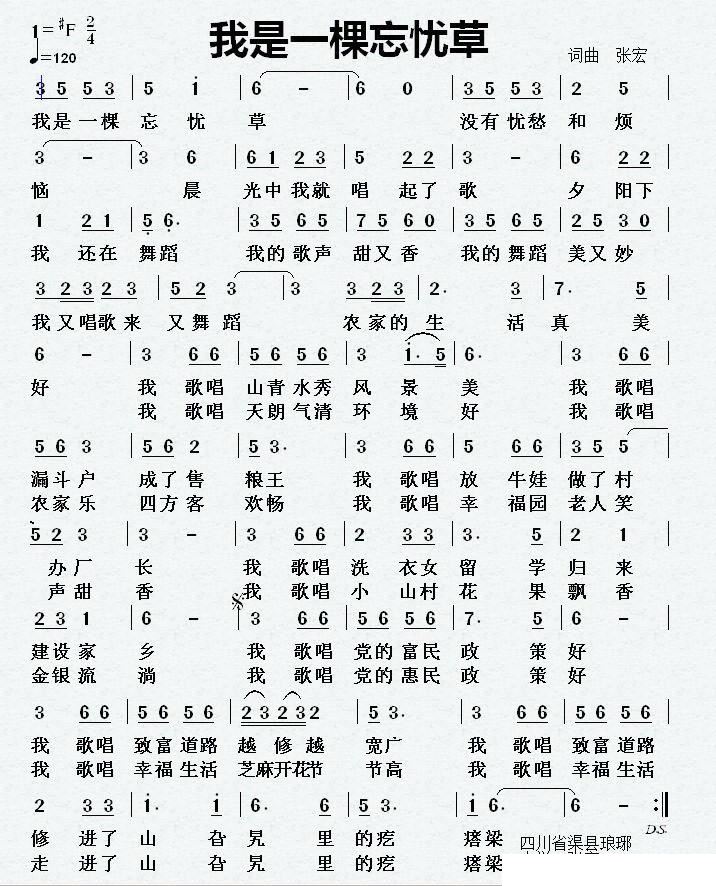 我是一棵忘忧草
1=♯F 2/4
♩=120
词曲 张宏
3 5 5 3 | 5 i | 6 - | 6 0 | 3 5 5 3 | 2 5 |
我是一棵 忘 忧 草 没有忧愁 和 烦
3 - | 3 6 | 6 1 2 3 | 5 2 2 | 3 - | 6 2 2 |
恼 晨 光中我就 唱 起了 歌 夕 阳下
1 2 1 | 5 6. | 3 5 6 5 | 7 5 6 0 | 3 5 6 5 | 2 5 3 0 |
我 还在 舞蹈 我的歌声 甜又香 我的舞蹈 美又妙
3 2 3 2 3 | 5 2 3 | 3 3 2 3 | 2. 5 | 7. 5 |
我又唱歌来 又舞蹈 农家的 生 活 真 美
6 - | 3 6 6 | 5 6 5 6 | 3 i. 5 | 6. | 3 6 6 |
好 我 歌唱 山青水秀 风 景 美 我 歌唱
我 歌唱 天朗气清 环 境 好 我 歌唱
5 6 3 | 5 6 2 | 5 3. | 3 6 6 | 5 6 6 | 3 5 5 |
漏斗户 成了售 粮王 我 歌唱 放 牛娃 做了村
农家乐 四方客 欢畅 我 歌唱 幸 福园 老人笑
5 2 3 | 3 - | 3 6 6 | 2 3 3 | 3. 5 | 2 1 |
办厂 长 我 歌唱 洗 衣女 留 学 归 来
声甜 香 我 歌唱 小 山村 花 果 飘 香
2 3 1 | 6 - | 3 6 6 | 5 6 5 6 | 7. 5 | 6 - |
建设家 乡 我 歌唱 党的富民 政 策 好
金银流 淌 我 歌唱 党的惠民 政 策 好
3 6 6 | 5 6 5 6 | 2 3 2 3 2 | 5 3. | 3 6 6 | 5 6 5 6 |
我 歌唱 致富道路 越 修 越 宽广 我 歌唱 致富道路
我 歌唱 幸福生活 芝麻开花节 节高 我 歌唱 幸福生活
2 3 3 | i. i | 6. 6 | i i 6 | i 6. | 6 - :||
D.S.
修 进了 山 旮 旯 里 的疙 瘩梁
走 进了 山 旮 旯 里 的疙 瘩梁
四川省渠县琅琊